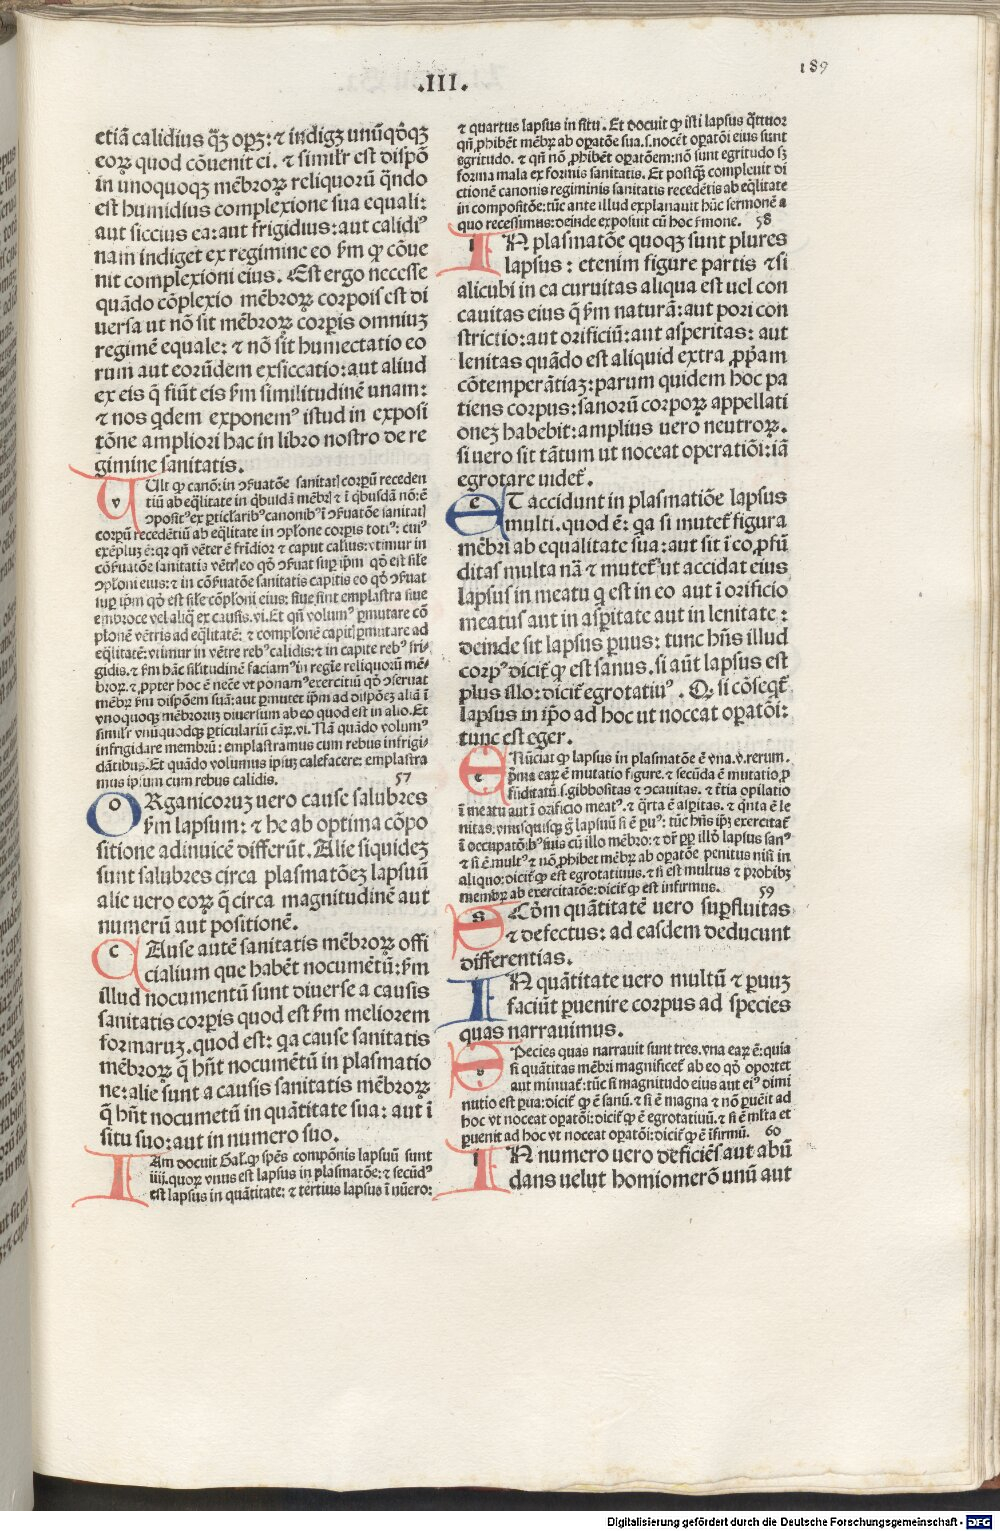 .III.
189
etiā calidius q̄ꝫ opꝫ: ⁊ indigꝫ unūqōqꝫ
eoꝝ quod cōuenit ei. ⁊ simil'r est dispō
in unoquoqꝫ mēbroꝝ reliquorū q̄ndo
est humidius complexione sua equali:
aut siccius ea: aut frigidius: aut calidiꝰ
nam indiget ex regimine eo ẜm ꝙ cōue
nit complexioni eius. Est ergo necesse
quādo cōplexio mēbroꝝ corpois est di
uersa ut nō sit mēbroꝝ corꝑis omniuꝫ
regimē equale: ⁊ nō sit humectatio eo
rum aut eorūdem exsiccatio: aut aliud
ex eis q̄ fiūt eis ẜm similitudinē unam:
⁊ nos qdem exponemꝰ istud in exposi
tōne ampliori hac in libro nostro de re
gimine sanitatis.
Ult ꝙ canō: in ↄẜuatōe sanitatꝭ corpū receden
tiū ab eq̄litate in qbusdā mēbrꝭ ⁊ ī qbusdā nō: ē
ↄpositꝰ ex ꝑticlaribꝰ canonibꝰ ī ↄẜuatōe sanitatꝭ
corpū recedētiū ab eq̄litate in ↄplone corꝑis totiꝰ: cuiꝰ
exēpluꝫ ē: qꝛ qn̄ vēter ē frīdior ⁊ caput calius: vtimur in
cōẜuatōe sanitatis vētrꝭ eo qō ↄẜuat suꝑ ipm̄ qō est sil'e
ↄploni eius: ⁊ in cōẜuatōe sanitatis capitis eo qō ↄẜuat
suꝑ ipm̄ qō est sil'e cōploni eius: siue sint emplastra siue
embroce vel aliq̄ ex causis. vi. Et qn̄ volumꝰ ꝑmutare cō
plonē vētris ad eq̄litatē: ⁊ complonē capitꝭ ꝑmutare ad
eq̄litatē: vtimur in vētre rebꝰ calidis: ⁊ in capite rebꝰ fri-
gidis. ⁊ ẜm hāc sil'itudinē faciamꝰ in regīe reliquorū mē-
broꝝ. ⁊ ꝓpter hoc ē necē vt ponamꝰ exercitiū qō ↄseruat
mēbꝝ ẜm dispōem suā: aut ꝑmutet ipm̄ ad dispōeꝫ aliā ī
vnoquoqꝫ mēbroruꝫ diuersum ab eo quod est in alio. Et
simil'r vnūquodqꝫ ꝑticulariū cāꝝ. vi. Nā quādo volumꝰ
infrigidare membrū: emplastramus cum rebus infrigi-
dātibus. Et quādo volumus ipsuꝫ calefacere: emplastra
mus ipsum cum rebus calidis. 57
ORganicoruꝫ vero cause salubres
ẜm lapsum: ⁊ he ab optima cōpo
sitione adinuicē differūt. Alie siquideꝫ
sunt salubres circa plasmatōeꝫ lapsuū
alie uero eoꝝ q̄ circa magnitudinē aut
numerū aut positionē.
CAuse autē sanitatis mēbroꝝ offi
cialium que habēt nocumētū: ẜm
illud nocumentū sunt diuerse a causis
sanitatis corꝑis quod est ẜm meliorem
formaruꝫ. quod est: qa cause sanitatis
mēbroꝝ q̄ hn̄t nocumētū in plasmatio
ne: alie sunt a causis sanitatis mēbroꝝ
q̄ hn̄t nocumetū in quātitate sua: aut ī
situ suo: aut in numero suo.
IAm docuit Gal. ꝙ spēs compōnis lapsuū sunt
iiij. quoꝝ vnus est lapsus in plasmatōe: ⁊ secūdꝰ
est lapsus in quātitate: ⁊ tertius lapsus ī nūero:
⁊ quartus lapsus in situ. Et docuit ꝙ isti lapsus q̄ttuor
qn̄ ꝓhibēt mēbꝝ ab oꝑatōe sua. s. nocēt oꝑatōi eius sunt
egritudo. ⁊ qn̄ nō ꝓhibēt oꝑatōem: nō sunt egritudo sꝫ
forma mala ex formis sanitatis. Et postqꝫ compleuit di
ctionē canonis regiminis sanitatis recedētis ab eq̄litate
in compositōe: tūc ante illud explanauit hūc sermonē a
quo recessimus: deinde exposuit cū hoc ẜmone. 58
IN plasmatōe quoqꝫ sunt plures
lapsus: etenim figure partis ⁊ si
alicubi in ea curuitas aliqua est uel con
cauitas eius q̄ ẜm naturā: aut pori con
strictio: aut orificiū: aut asperitas: aut
lenitas quādo est aliquid extra ꝓpͥam
cōtemperātiaꝫ: parum quidem hoc pa
tiens corpus: sanorū corpoꝝ appellati
oneꝫ habebit: amplius uero neutroꝝ.
si uero sit tātum ut noceat operatiōi: iā
egrotare uidet᷒.
ET accidunt in plasmatiōe lapsus
multi. quod ē: qa si mutet᷒ figura
mēbri ab equalitate sua: aut sit ī eo ꝓfū
ditas multa nā ⁊ mutet᷒ ut accidat eius
lapsus in meatu q est in eo aut ī orificio
meatus aut in asꝑitate aut in lenitate:
deinde sit lapsus ꝑuus: tunc hn̄s illud
corpꝰ dicit᷒ ꝙ est sanus. si aūt lapsus est
plus illo: dicit᷒ egrotatiuꝰ. Ꝙ si cōseqt᷒
lapsus in ip̄o ad hoc ut noceat oꝑatōi:
tunc est eger.
ENūciat ꝙ lapsus in plasmatōe ē vna. v. rerum.
pͥma eaꝝ ē mutatio figure. ⁊ secūda ē mutatio ꝓ
fūditatū. s. gibbositas ⁊ ↄcauitas. ⁊ tͥtia opilatio
ī meatu aut ī orificio meatꝰ. ⁊ qͣrta ē asꝑitas. ⁊ qͥnta ē le
nitas. vnusquisqꝫ gͦ lapsuū si ē ꝑuꝰ: tūc hn̄s ipꝫ exercitat᷒
ī occupatōibꝰ suis cū illo mēbro: ⁊ dr̄ ꝓꝑ illō lapsus sanꝰ
⁊ si ē multꝰ ⁊ nō ꝓhibet mēbꝝ ab oꝑatōe penitus nisi in
aliquo: dicit᷒ ꝙ est egrotatiuus. ⁊ si est multus ⁊ probibꝫ
membꝝ ab exercitatōe: dicit᷒ ꝙ est infirmus. 59
SEcōm quātitatē uero suꝑfluitas
⁊ defectus: ad easdem deducunt
differentias.
IN quātitate uero multū ⁊ ꝑuuꝫ
faciūt ꝑuenire corpus ad species
quas narrauimus.
SPecies quas narrauit sunt tres. vna eaꝝ ē: quia
si quātitas mēbri magnificet᷒ ab eo qō oportet
aut minuat᷒: tūc si magnitudo eius aut eiꝰ dimi
nutio est ꝑua: dicit᷒ ꝙ ē sanū. ⁊ si ē magna ⁊ nō ꝑuēit ad
hoc vt noceat oꝑatōi: dicit᷒ ꝙ ē egrotatiuū. ⁊ si ē ml'ta et
ꝑuenit ad hoc vt noceat oꝑatōi: dicit᷒ ꝙ ē īfirmū. 60
IN numero uero deficiēs aut abū
dans uelut homiomerō unū aut
Digitalisierung gefördert durch die Deutsche Forschungsgemeinschaft - DFG